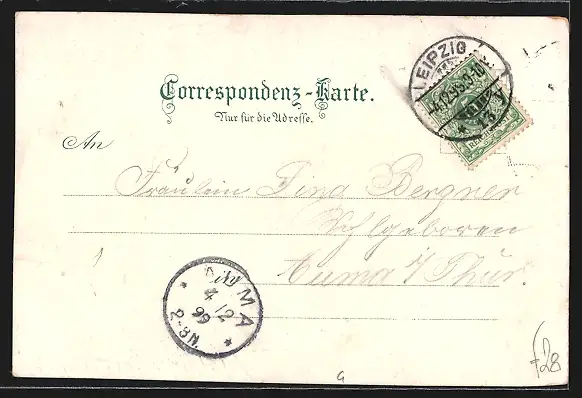 LEIPZIG
13
Correspondenz-Karte.
Nur für die Adresse.
An
Fräulein Lina Bergner
Wohlgeboren
in
Auma i/ Thür.
AUMA
4 12
99
2-3N.
f28